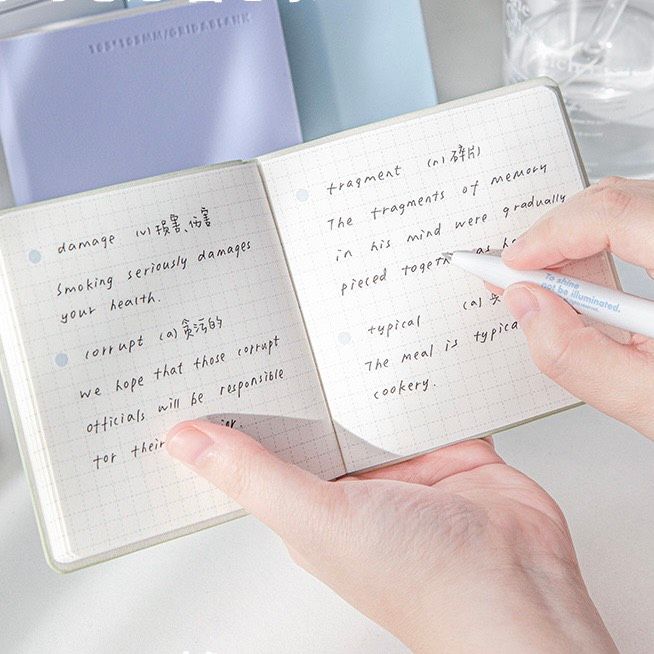 105*105MM/GRID&BLANK
damage (v) 损害、伤害
Smoking seriously damages
your health.
corrupt (a) 贪污的
We hope that those corrupt
officials will be responsible
for their
fragment (n) 碎片
The fragments of memory
in his mind were gradually
pieced
typical (a)
The meal is
cookery.
To shine
not be illuminated.